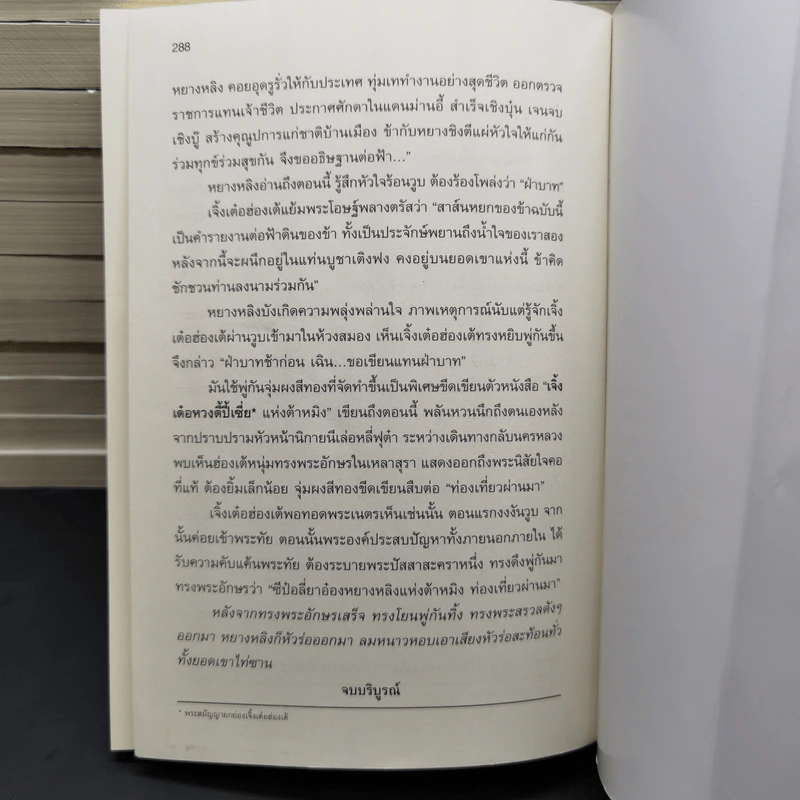 288
หยางหลิง คอยอุดรูรั่วให้กับประเทศ ทุ่มเททำงานอย่างสุดชีวิต ออกตรวจ
ราชการแทนเจ้าชีวิต ประกาศศักดาในแดนม่านอี๋ สำเร็จเชิงบุ๋น เจนจบ
เชิงบู๊ สร้างคุณูปการแก่ชาติบ้านเมือง ข้ากับหยางชิงตีแผ่หัวใจให้แก่กัน
ร่วมทุกข์ร่วมสุขกัน จึงขออธิษฐานต่อฟ้า...”
หยางหลิงอ่านถึงตอนนี้ รู้สึกหัวใจร้อนวูบ ต้องร้องโพล่งว่า “ฝ่าบาท”
เจิ้งเต๋อฮ่องเต้แย้มพระโอษฐ์พลางตรัสว่า “สาส์นหยกของข้าฉบับนี้
เป็นคำรายงานต่อฟ้าดินของข้า ทั้งเป็นประจักษ์พยานถึงน้ำใจของเราสอง
หลังจากนี้จะผนึกอยู่ในแท่นบูชาเติงฟง คงอยู่บนยอดเขาแห่งนี้ ข้าคิด
ชักชวนท่านลงนามร่วมกัน”
หยางหลิงบังเกิดความพลุ่งพล่านใจ ภาพเหตุการณ์นับแต่รู้จักเจิ้ง
เต๋อฮ่องเต้ผ่านวูบเข้ามาในห้วงสมอง เห็นเจิ้งเต๋อฮ่องเต้ทรงหยิบพู่กันขึ้น
จึงกล่าว “ฝ่าบาทช้าก่อน เฉิน...ขอเขียนแทนฝ่าบาท”
มันใช้พู่กันจุ่มผงสีทองที่จัดทำขึ้นเป็นพิเศษขีดเขียนตัวหนังสือ “เจิ้ง
เต๋อหวงตี้ปี้เซี่ย* แห่งต้าหมิง” เขียนถึงตอนนี้ พลันหวนนึกถึงตนเองหลัง
จากปราบปรามหัวหน้านิกายนีเล่อหลี่ฟุต๋า ระหว่างเดินทางกลับนครหลวง
พบเห็นฮ่องเต้หนุ่มทรงพระอักษรในเหลาสุรา แสดงออกถึงพระนิสัยใจคอ
ที่แท้ ต้องยิ้มเล็กน้อย จุ่มผงสีทองขีดเขียนสืบต่อ “ท่องเที่ยวผ่านมา”
เจิ้งเต๋อฮ่องเต้พอทอดพระเนตรเห็นเช่นนั้น ตอนแรกงงงันวูบ จาก
นั้นค่อยเข้าพระทัย ตอนนั้นพระองค์ประสบปัญหาทั้งภายนอกภายใน ได้
รับความคับแค้นพระทัย ต้องระบายพระปัสสาสะคราหนึ่ง ทรงดึงพู่กันมา
ทรงพระอักษรว่า “ซีป๋อลี่ยาอ๋องหยางหลิงแห่งต้าหมิง ท่องเที่ยวผ่านมา”
หลังจากทรงพระอักษรเสร็จ ทรงโยนพู่กันทิ้ง ทรงพระสรวลดังๆ
ออกมา หยางหลิงก็หัวร่อออกมา ลมหนาวหอบเอาเสียงหัวร่อสะท้อนทั่ว
ทั้งยอดเขาไท่ซาน
จบบริบูรณ์
* พระสมัญญายกย่องเจิ้งเต๋อฮ่องเต้